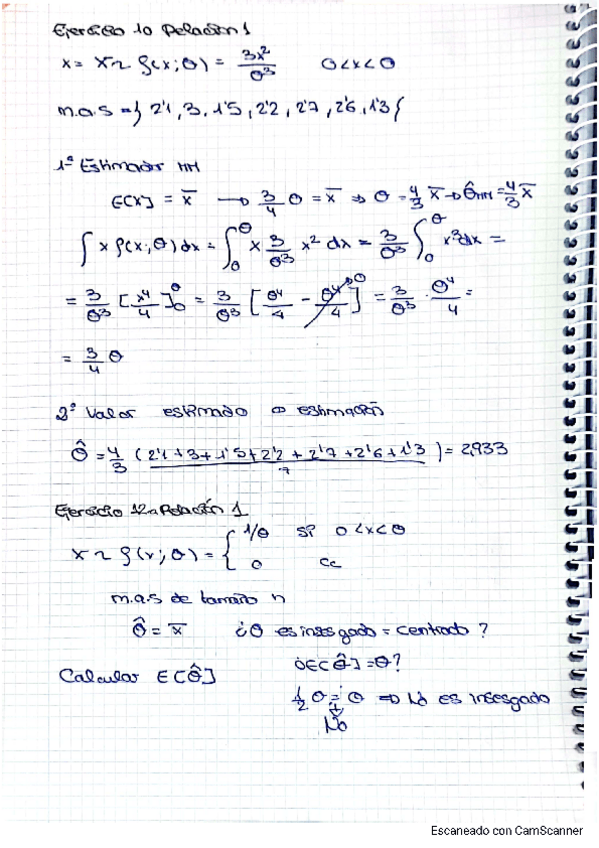 Ejercicio 10 Relación 1
X = X ~ f(x; θ) = 3x²/θ³   0<x<θ
m.a.s = { 2'1, 3, 1'5, 2'2, 2'7, 2'6, 1'3 {
1º Estimador MM
E[X] = x̄ → 3/4 θ = x̄ ⇒ θ = 4/3 x̄ → θ̂MM = 4/3 x̄
∫ x f(x; θ) dx = ∫₀^θ x 3/θ³ x² dx = 3/θ³ ∫₀^θ x³ dx =
= 3/θ³ [x⁴/4]₀^θ = 3/θ³ [θ⁴/4 - 0⁴/4]^0 = 3/θ³ · θ⁴/4 =
= 3/4 θ
2º Valor estimado o estimación
θ̂ = 4/3 (2'1+3+1'5+2'2+2'7+2'6+1'3)/7 = 2,933
Ejercicio 12.a Relación 1
X ~ f(x; θ) = { 1/θ si 0<x<θ
0 cc
m.a.s de tamaño n
θ̂ = x̄ ¿θ es insesgado = centrado?
Calcular E[θ̂] ¿E[θ̂] = θ?
1/2 θ = θ ⇒ No es insesgado
No
Escaneado con CamScanner